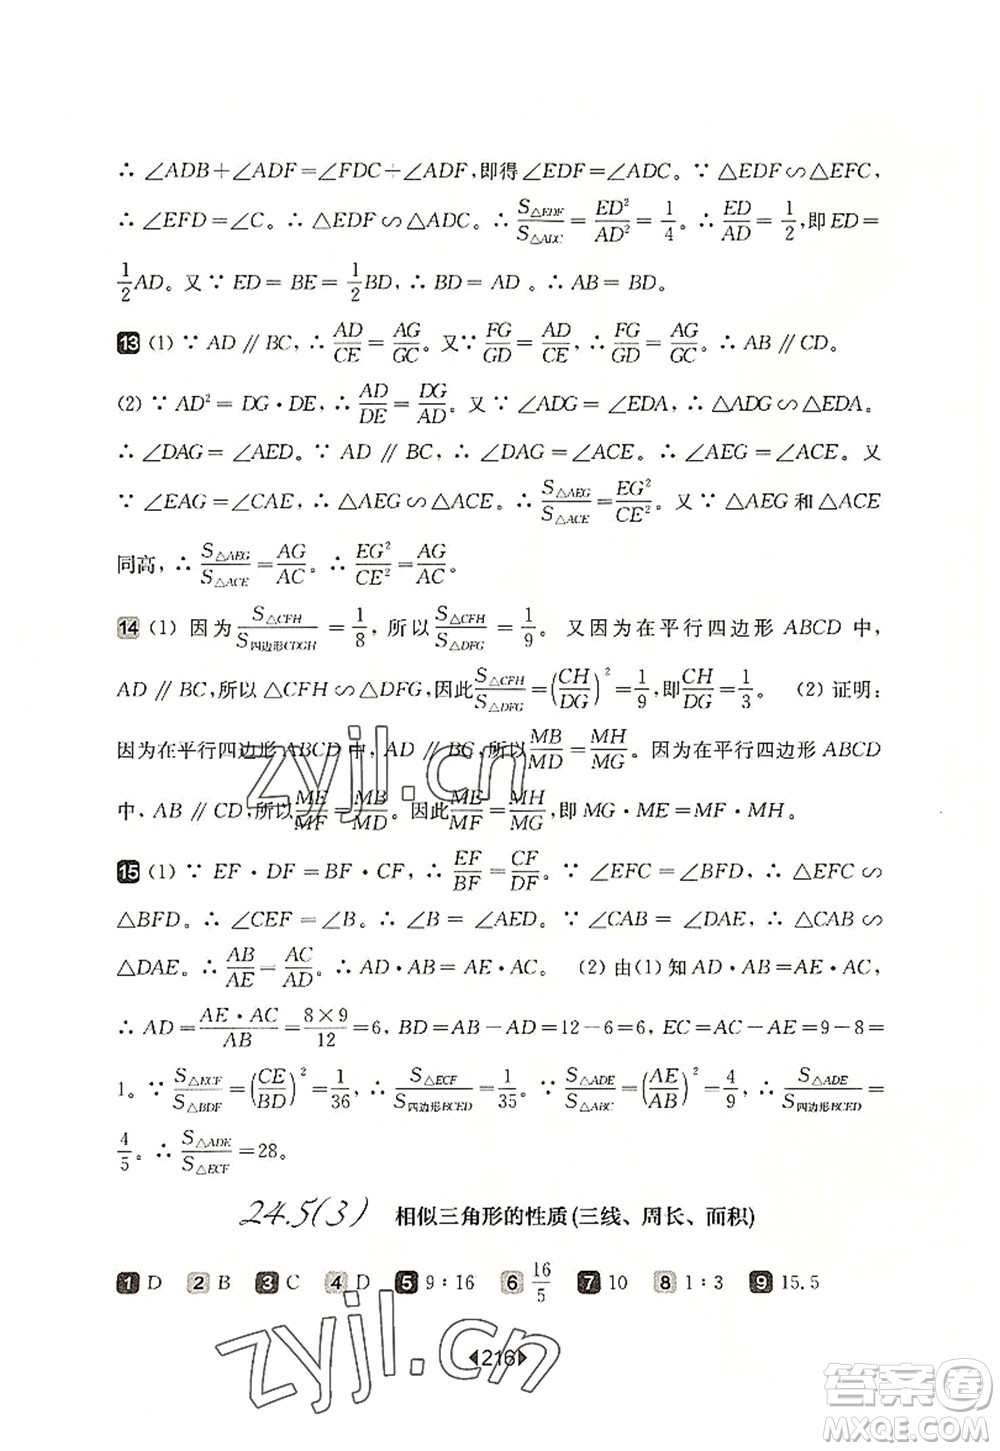 ∴ ∠ADB＋∠ADF＝∠FDC＋∠ADF，即得∠EDF＝∠ADC。∵ △EDF∽△EFC，
∴ ∠EFD＝∠C。∴ △EDF∽△ADC。∴ S△EDF/S△ADC＝ED²/AD²＝1/4。∴ ED/AD＝1/2，即ED＝
1/2AD。又∵ ED＝BE＝1/2BD，∴ BD＝AD。∴ AB＝BD。
13 (1) ∵ AD∥BC，∴ AD/CE＝AG/GC。又∵ FG/GD＝AD/CE，∴ FG/GD＝AG/GC。∴ AB∥CD。
(2) ∵ AD²＝DG·DE，∴ AD/DE＝DG/AD。又∵ ∠ADG＝∠EDA，∴ △ADG∽△EDA。
∴ ∠DAG＝∠AED。∵ AD∥BC，∴ ∠DAG＝∠ACE。∴ ∠AEG＝∠ACE。又
∵ ∠EAG＝∠CAE，∴ △AEG∽△ACE。∴ S△AEG/S△ACE＝EG²/CE²。又∵ △AEG和△ACE
同高，∴ S△AEG/S△ACE＝AG/AC。∴ EG²/CE²＝AG/AC。
14 (1) 因为S△CFH/S四边形CDGH＝1/8，所以S△CFH/S△DFG＝1/9。又因为在平行四边形ABCD中，
AD∥BC，所以△CFH∽△DFG，因此S△CFH/S△DFG＝(CH/DG)²＝1/9，即CH/DG＝1/3。 (2) 证明：
因为在平行四边形ABCD中，AD∥BC，所以MB/MD＝MH/MG。因为在平行四边形ABCD
中，AB∥CD，所以ME/MF＝MB/MD。因此ME/MF＝MH/MG，即MG·ME＝MF·MH。
15 (1) ∵ EF·DF＝BF·CF，∴ EF/BF＝CF/DF。∵ ∠EFC＝∠BFD，∴ △EFC∽
△BFD。∴ ∠CEF＝∠B。∴ ∠B＝∠AED。∵ ∠CAB＝∠DAE，∴ △CAB∽
△DAE。∴ AB/AE＝AC/AD。∴ AD·AB＝AE·AC。 (2) 由(1)知AD·AB＝AE·AC，
∴ AD＝AE·AC/AB＝8×9/12＝6，BD＝AB－AD＝12－6＝6，EC＝AC－AE＝9－8＝
1。∵ S△ECF/S△BDF＝(CE/BD)²＝1/36，∴ S△ECF/S四边形BCED＝1/35。∵ S△ADE/S△ABC＝(AE/AB)²＝4/9，∴ S△ADE/S四边形BCED＝
4/5。∴ S△ADE/S△ECF＝28。
24.5(3) 相似三角形的性质(三线、周长、面积)
1 D 2 B 3 C 4 D 5 9：16 6 16/5 7 10 8 1：3 9 15.5
216
zyjl.cn
zyjl.cn
答案圈
MXQE.COM